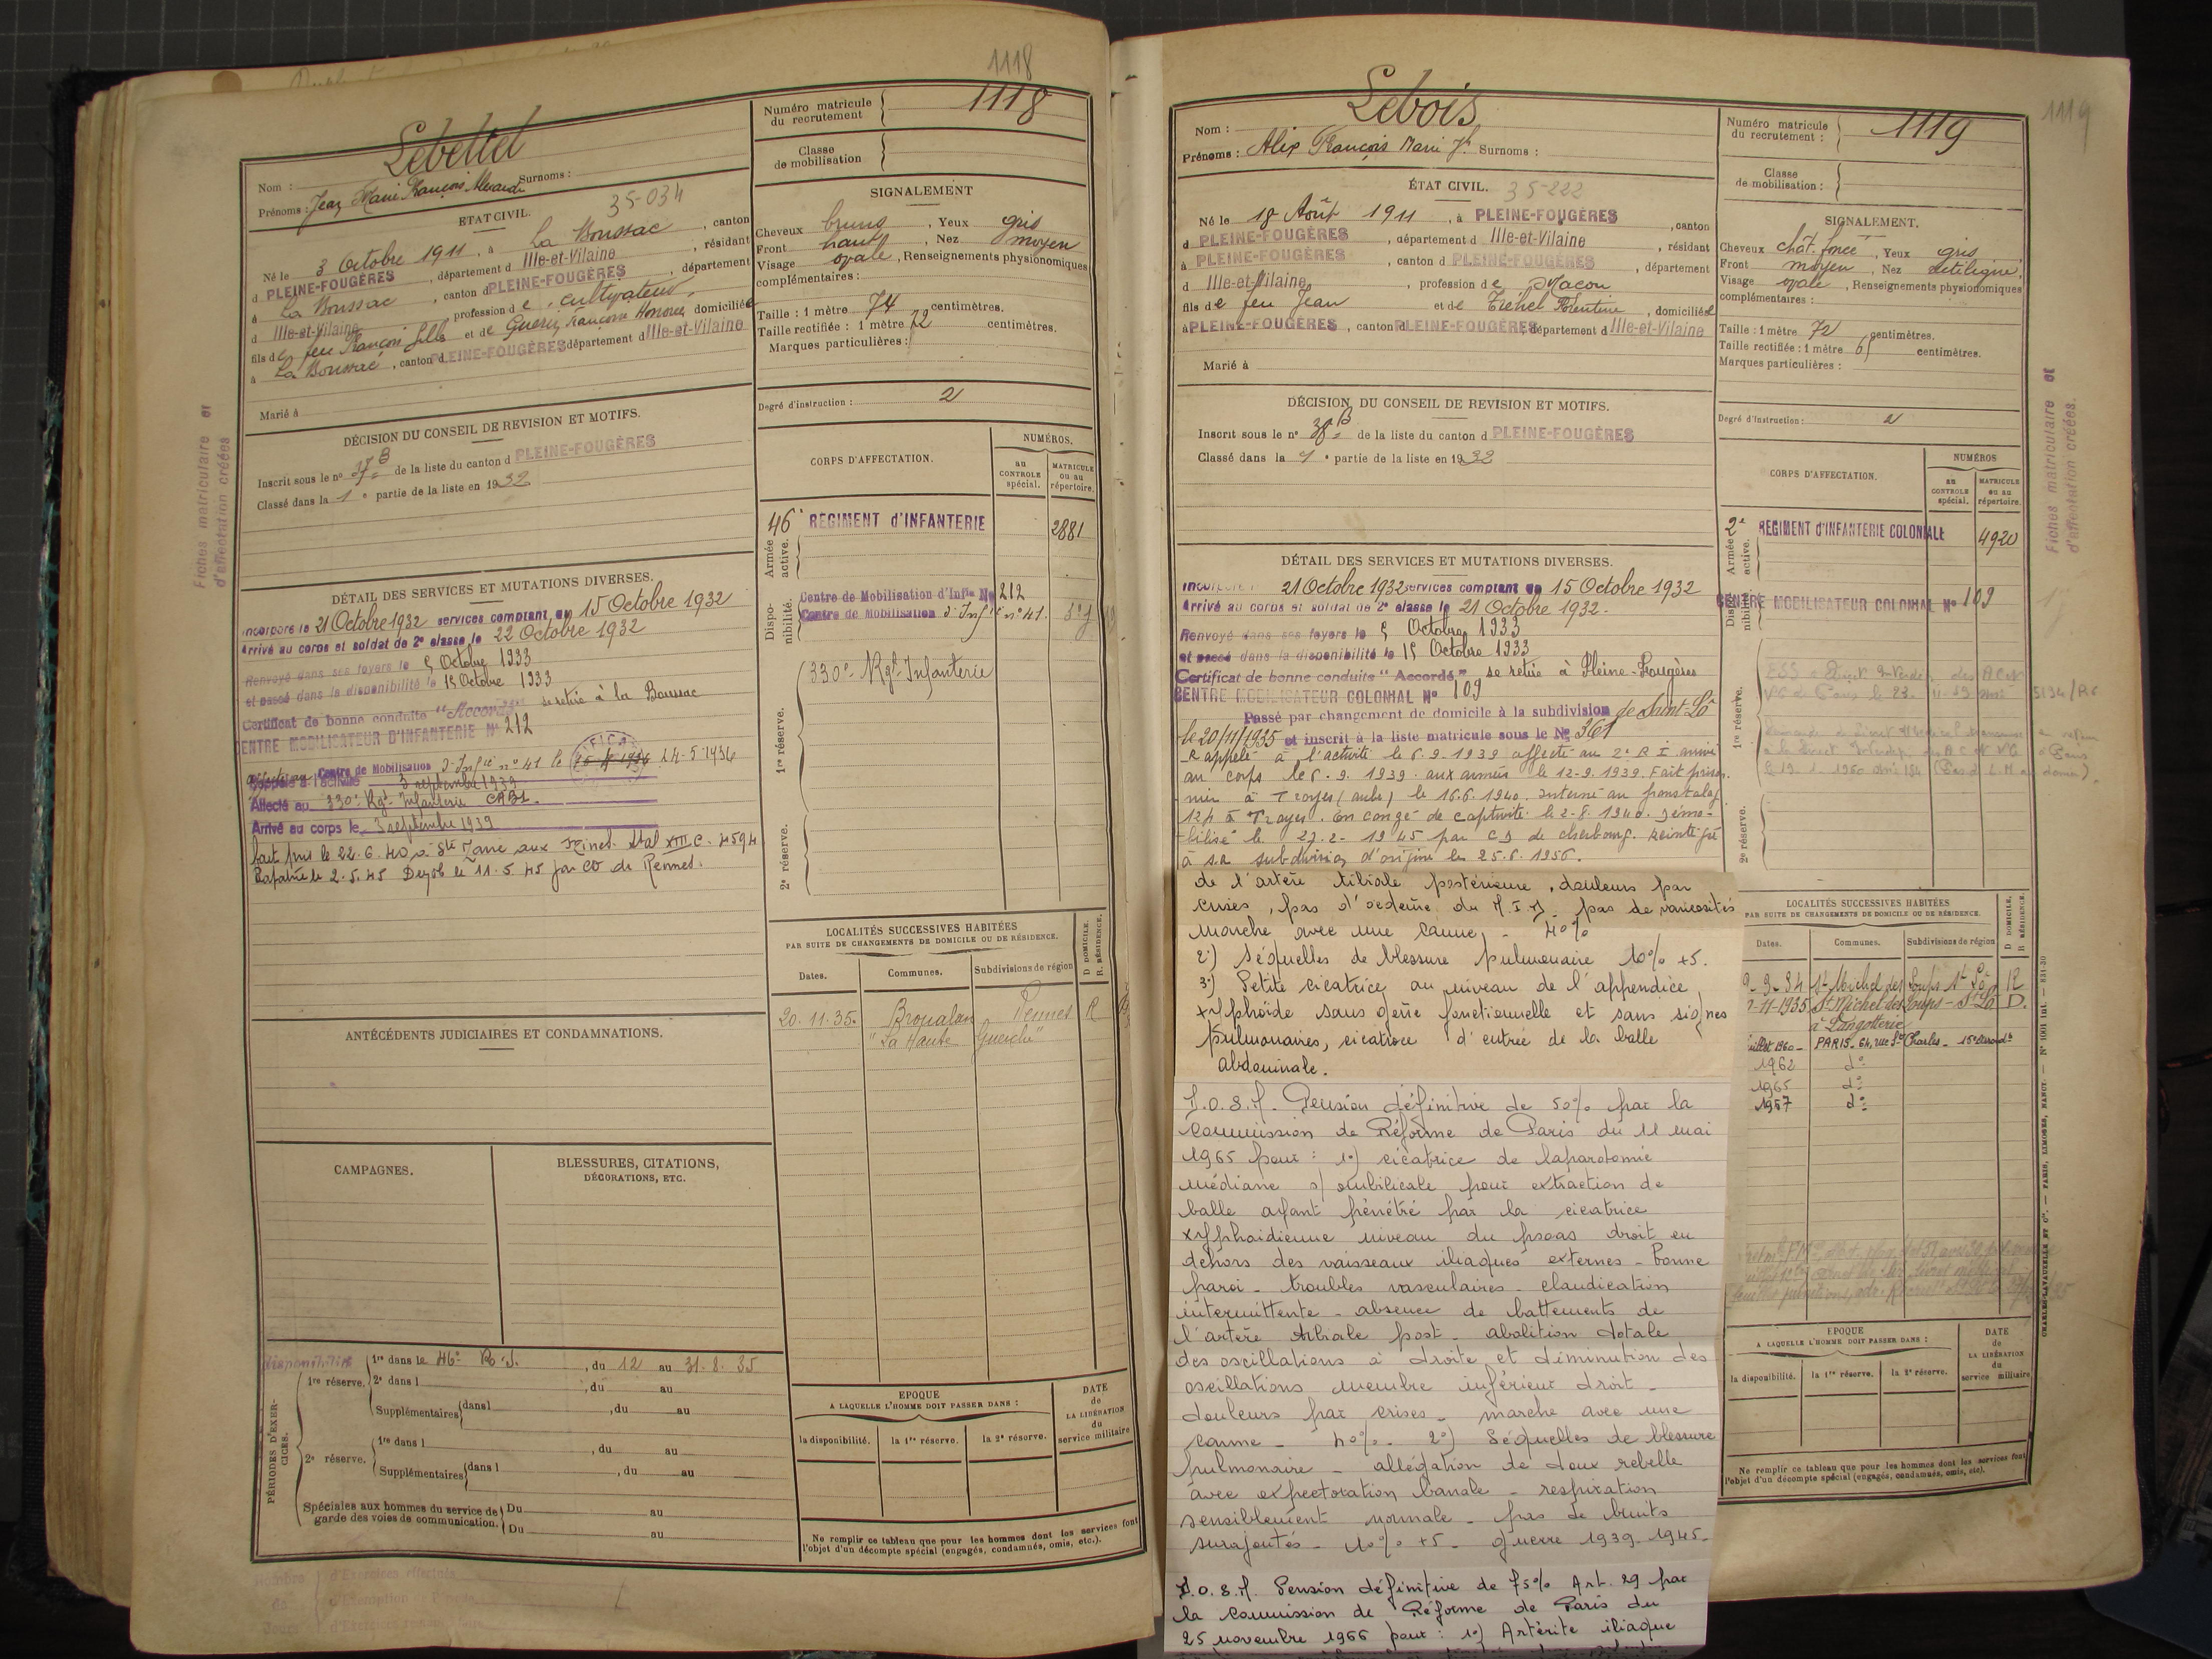 1118
Lebettel
Nom :
Prénoms : Jean Marie François Surnoms :
ÉTAT CIVIL. 35-034
Né le 3 Octobre 1911, à La Boussac, canton
d PLEINE-FOUGÈRES, département d Ille-et-Vilaine, résidant
à La Boussac, canton d PLEINE-FOUGÈRES, département
d Ille-et-Vilaine, profession de cultivateur,
fils de feu François Gille et de Françoise Honorée domiciliée
à La Boussac, canton d PLEINE-FOUGÈRES département d Ille-et-Vilaine
Marié à
DÉCISION DU CONSEIL DE REVISION ET MOTIFS.
Inscrit sous le n° 37 B de la liste du canton d PLEINE-FOUGÈRES
Classé dans la 1e partie de la liste en 1932
DÉTAIL DES SERVICES ET MUTATIONS DIVERSES.
Incorporé le 21 Octobre 1932 services comptant du 15 Octobre 1932
Arrivé au corps et soldat de 2e classe le 22 Octobre 1932
Renvoyé dans ses foyers le 5 Octobre 1933
et passé dans la disponibilité le 15 Octobre 1933
Certificat de bonne conduite "Accordé" se retire à la Boussac
CENTRE MOBILISATEUR D'INFANTERIE N° 212
Affecté au Centre de Mobilisation d'Infie n° 41 le 24-5-1936
Rappelé à l'activité 3 septembre 1939
Affecté au 330e Rgt Infanterie
Arrivé au corps le 3 septembre 1939
fait pris le 22.6.40 à Ste Marie aux Mines. Stal XIII C. 4594
Rapatrié le 2.5.45 Démob le 11.5.45 par CD de Rennes.
ANTÉCÉDENTS JUDICIAIRES ET CONDAMNATIONS.
CAMPAGNES.
BLESSURES, CITATIONS,
DÉCORATIONS, ETC.
PÉRIODES D'EXERCICES.
disponibilité 1re dans le 46e R.I., du 12 au 31.8.35
1re réserve. 2e dans l , du au
Supplémentaires dans l , du au
1re dans l , du au
2e réserve.
Supplémentaires dans l , du au
Spéciales aux hommes du service de Du au
garde des voies de communication. Du au
Fiches matriculaire et
d'affectation créées
Numéro matricule
du recrutement
1118
Classe
de mobilisation
SIGNALEMENT
Cheveux bruns, Yeux gris
Front haut, Nez moyen
Visage ovale, Renseignements physionomiques
complémentaires :
Taille : 1 mètre 74 centimètres.
Taille rectifiée : 1 mètre 72 centimètres.
Marques particulières :
Degré d'instruction : 2
CORPS D'AFFECTATION.
NUMÉROS.
au CONTROLE spécial.
MATRICULE ou au répertoire.
Armée active.
46e REGIMENT d'INFANTERIE 2881
Disponibilité.
Centre de Mobilisation d'Infie N° 212
Centre de Mobilisation d'Infie n° 41.
1re réserve.
330e Rgt Infanterie
2e réserve.
LOCALITÉS SUCCESSIVES HABITÉES
PAR SUITE DE CHANGEMENTS DE DOMICILE OU DE RÉSIDENCE.
D. DOMICILE.
R. RÉSIDENCE.
Dates. Communes. Subdivisions de région
20.11.35. Broualan Rennes R
"La Haute Guerche"
EPOQUE
A LAQUELLE L'HOMME DOIT PASSER DANS :
DATE
de
LA LIBÉRATION
du
service militaire
la disponibilité. la 1re réserve. la 2e réserve.
Ne remplir ce tableau que pour les hommes dont les services font
l'objet d'un décompte spécial (engagés, condamnés, omis, etc.).
1119
Lebois
Nom :
Prénoms : Alix François Marie Jh Surnoms :
ÉTAT CIVIL. 35-222
Né le 18 Août 1911, à PLEINE-FOUGÈRES, canton
d PLEINE-FOUGÈRES, département d Ille-et-Vilaine, résidant
à PLEINE-FOUGÈRES, canton d PLEINE-FOUGÈRES, département
d Ille-et-Vilaine, profession de Maçon
fils de feu Jean et de domiciliée
à PLEINE-FOUGÈRES, canton d PLEINE-FOUGÈRES département d Ille-et-Vilaine
Marié à
DÉCISION DU CONSEIL DE REVISION ET MOTIFS.
Inscrit sous le n° 38 B de la liste du canton d PLEINE-FOUGÈRES
Classé dans la 1e partie de la liste en 1932
DÉTAIL DES SERVICES ET MUTATIONS DIVERSES.
Incorporé le 21 Octobre 1932 services comptant du 15 Octobre 1932
Arrivé au corps et soldat de 2e classe le 21 Octobre 1932.
Renvoyé dans ses foyers le 5 Octobre 1933
et passé dans la disponibilité le 15 Octobre 1933
Certificat de bonne conduite "Accordé" se retire à Pleine-Fougères
CENTRE MOBILISATEUR COLONIAL N° 109
Passé par changement de domicile à la subdivision de Saint-Lô
le 20/11/1935 et inscrit à la liste matricule sous le N° 361
Rappelé à l'activité le 6.9.1939 affecté au 2e R I arrivé
au corps le 6.9.1939. aux armées le 12-9.1939. Fait prison-
nier à Troyes (aube) le 16.6.1940. interné au fronstalag
124 à Troyes. En congé de captivité le 2-8.1940. démo-
bilisé le 27.2-1945 par CD de cherbourg. Réintégré
à sa subdivision d'origine le 25.6.1956.
de l'artère tibiale postérieure, douleurs par
crises, pas d'oedème du M.I.D. pas de varicosités
marche avec une canne, - 40%
2°) Séquelles de blessure pulmonaire 10% +5.
3°) Petite cicatrice au niveau de l'appendice
xyphoïde sans gêne fonctionnelle et sans signes
pulmonaires, cicatrice d'entrée de la balle
abdominale.
Pension définitive de 50% par la
commission de Réforme de Paris du 11 mai
1965 pour : 1°) cicatrice de laparotomie
médiane s/ ombilicale pour extraction de
balle ayant pénétré par la cicatrice
xyphoidienne niveau du psoas droit en
dehors des vaisseaux iliaques externes - bonne
paroi - troubles vasculaires - claudication
intermittente - absence de battements de
l'artère tibiale post - abolition totale
des oscillations à droite et diminution des
oscillations membre inférieur droit -
douleurs par crises - marche avec une
canne - 40% - 2°) Séquelles de blessure
pulmonaire - allégation de toux rebelle
avec expectoration banale - respiration
sensiblement normale - pas de bruits
surajoutés - 10% +5 - guerre 1939.1945-
Pension définitive de 75% Art. 29 par
la commission de Réforme de Paris du
25 novembre 1966 pour : 1°) Artérite iliaque
Numéro matricule
du recrutement :
1119
Classe
de mobilisation :
SIGNALEMENT.
Cheveux chât. foncé, Yeux gris
Front moyen, Nez rectiligne,
Visage ovale, Renseignements physionomiques
complémentaires :
Taille : 1 mètre 72 centimètres.
Taille rectifiée : 1 mètre 65 centimètres.
Marques particulières :
Degré d'instruction : 2
CORPS D'AFFECTATION.
NUMÉROS
au CONTROLE spécial.
MATRICULE ou au répertoire.
Armée active.
2e REGIMENT d'INFANTERIE COLONIALE 4920
Disponibilité.
CENTRE MOBILISATEUR COLONIAL N° 109
1re réserve.
2e réserve.
LOCALITÉS SUCCESSIVES HABITÉES
PAR SUITE DE CHANGEMENTS DE DOMICILE OU DE RÉSIDENCE.
D. DOMICILE.
R. RÉSIDENCE.
Dates. Communes. Subdivisions de région
9-34 St Michel des Loups St Lô R
11-1935 St Michel des Loups - St Lô D.
à Langotterie
juillet 1960 - PARIS - 64, rue St Charles - 15e arrondt
1962 do
1965 do
1967 do
EPOQUE
A LAQUELLE L'HOMME DOIT PASSER DANS :
DATE
de
LA LIBÉRATION
du
service militaire
la disponibilité. la 1re réserve. la 2e réserve.
Ne remplir ce tableau que pour les hommes dont les services font
l'objet d'un décompte spécial (engagés, condamnés, omis, etc).
1119
Fiches matriculaire et
d'affectation créées.
CHARLES-LAVAUZELLE ET Cie. — PARIS, LIMOGES, NANCY.